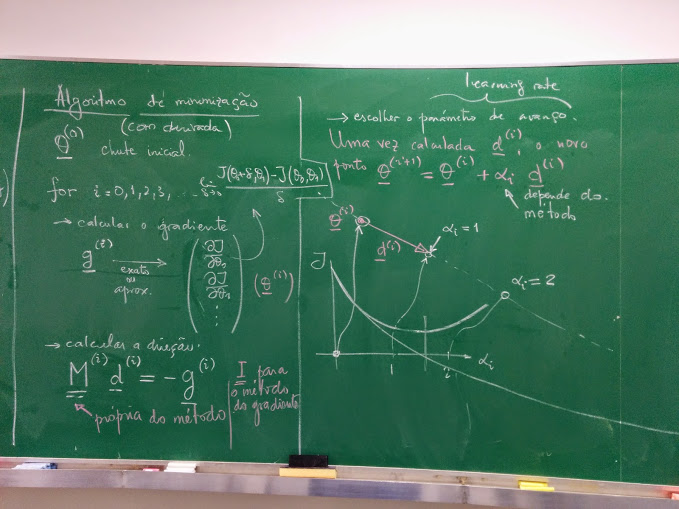 Algoritmo de minimização
(com derivada)
θ^(0) chute inicial.
for i=0,1,2,3, ...
lim δ→0 J(θ₀+δ,θ₁)-J(θ₀,θ₁) / δ
→ calcular o gradiente
g^(i) → (∂J/∂θ₀ ∂J/∂θ₁ ⋮) (θ^(i))
exato
ou
aprox.
→ calcular a direção.
M^(i) d^(i) = -g^(i)
própria do método
I para
o método
do gradiente
learning rate
→ escolher o parâmetro de avanço.
Uma vez calculada d^(i), o novo
ponto θ^(i+1) = θ^(i) + αᵢ d^(i)
depende do
método
θ^(i)
d^(i)
αᵢ=1
αᵢ=2
J
1
2
αᵢ